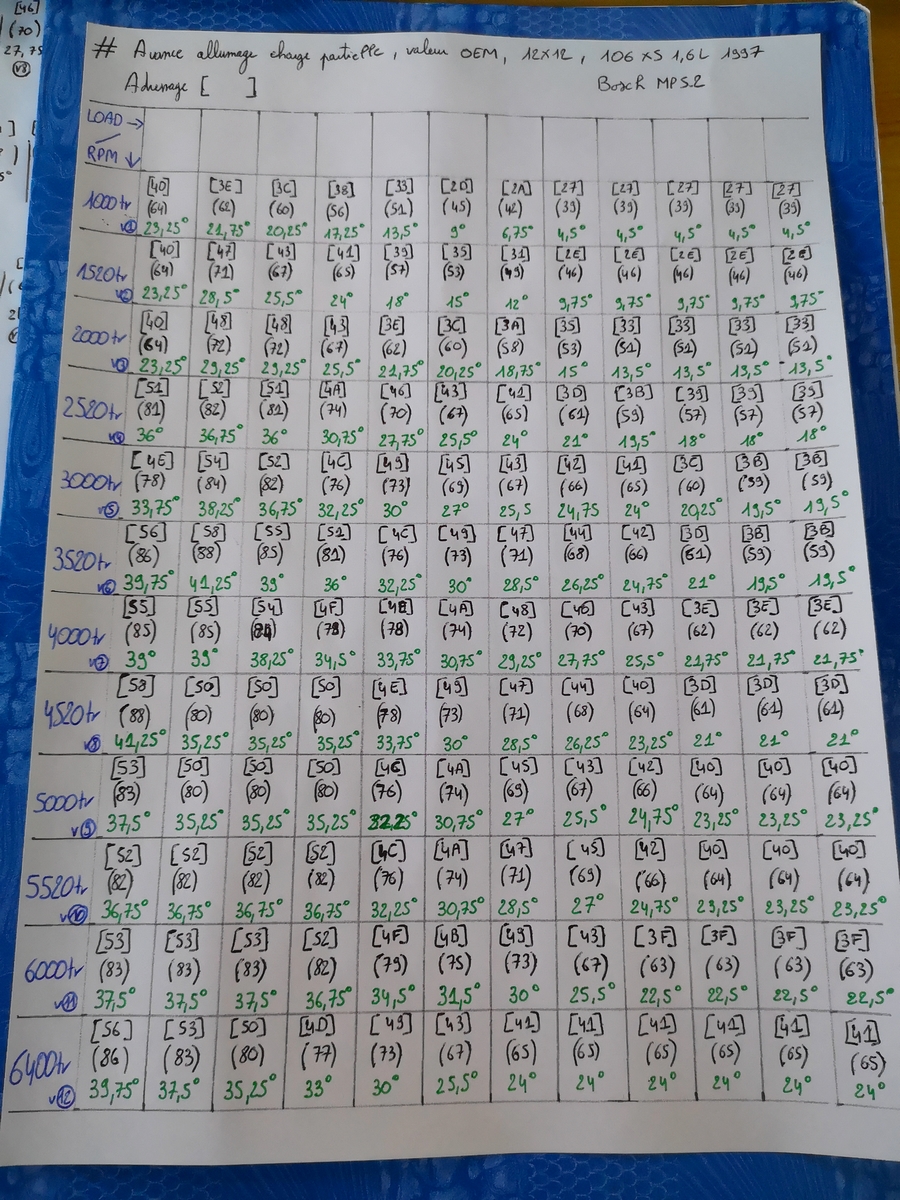 [46]
(70)
27,75
v3
# Avance allumage charge partielle, valeur OEM, 12x12, 106 XS 1,6L 1997
Adressage [ ] Bosch MP5.2
LOAD →
RPM ↓
[40] [3E] [3C] [38] [33] [2D] [2A] [27] [27] [27] [27] [27]
1000tr (64) (62) (60) (56) (51) (45) (42) (39) (39) (39) (39) (39)
v1 23,25° 21,75° 20,25° 17,25° 13,5° 9° 6,75° 4,5° 4,5° 4,5° 4,5° 4,5°
[40] [47] [43] [41] [39] [35] [31] [2E] [2E] [2E] [2E] [2E]
1520tr (64) (71) (67) (65) (57) (53) (49) (46) (46) (46) (46) (46)
v2 23,25° 28,5° 25,5° 24° 18° 15° 12° 9,75° 9,75° 9,75° 9,75° 9,75°
[40] [48] [48] [43] [3E] [3C] [3A] [35] [33] [33] [33] [33]
2000tr (64) (72) (72) (67) (62) (60) (58) (53) (51) (51) (51) (51)
v3 23,25° 29,25° 29,25° 25,5° 21,75° 20,25° 18,75° 15° 13,5° 13,5° 13,5° 13,5°
[51] [52] [51] [4A] [46] [43] [41] [3D] [3B] [39] [39] [39]
2520tr (81) (82) (81) (74) (70) (67) (65) (61) (59) (57) (57) (57)
v4 36° 36,75° 36° 30,75° 27,75° 25,5° 24° 21° 19,5° 18° 18° 18°
[4E] [54] [52] [4C] [49] [45] [43] [42] [41] [3C] [3B] [3B]
3000tr (78) (84) (82) (76) (73) (69) (67) (66) (65) (60) (59) (59)
v5 33,75° 38,25° 36,75° 32,25° 30° 27° 25,5 24,75 24° 20,25° 19,5° 19,5°
[56] [58] [55] [51] [4C] [49] [47] [44] [42] [3D] [3B] [3B]
3520tr (86) (88) (85) (81) (76) (73) (71) (68) (66) (61) (59) (59)
v6 39,75° 41,25° 39° 36° 32,25° 30° 28,5° 26,25° 24,75° 21° 19,5° 19,5°
[55] [55] [54] [4F] [4E] [4A] [48] [46] [43] [3E] [3E] [3E]
4000tr (85) (85) (84) (79) (78) (74) (72) (70) (67) (62) (62) (62)
v7 39° 39° 38,25° 34,5° 33,75° 30,75° 29,25° 27,75° 25,5° 21,75° 21,75° 21,75°
[58] [50] [50] [50] [4E] [49] [47] [44] [40] [3D] [3D] [3D]
4520tr (88) (80) (80) (80) (78) (73) (71) (68) (64) (61) (61) (61)
v8 41,25° 35,25° 35,25° 35,25° 33,75° 30° 28,5° 26,25° 23,25° 21° 21° 21°
[53] [50] [50] [50] [4C] [4A] [45] [43] [42] [40] [40] [40]
5000tr (83) (80) (80) (80) (76) (74) (69) (67) (66) (64) (64) (64)
v9 37,5° 35,25° 35,25° 35,25° 32,25° 30,75° 27° 25,5° 24,75° 23,25° 23,25° 23,25°
[52] [52] [52] [52] [4C] [4A] [47] [45] [42] [40] [40] [40]
5520tr (82) (82) (82) (82) (76) (74) (71) (69) (66) (64) (64) (64)
v10 36,75° 36,75° 36,75° 36,75° 32,25° 30,75° 28,5° 27° 24,75° 23,25° 23,25° 23,25°
[53] [53] [53] [52] [4F] [4B] [49] [43] [3F] [3F] [3F] [3F]
6000tr (83) (83) (83) (82) (79) (75) (73) (67) (63) (63) (63) (63)
v11 37,5° 37,5° 37,5° 36,75° 34,5° 31,5° 30° 25,5° 22,5° 22,5° 22,5° 22,5°
[56] [53] [50] [4D] [49] [43] [41] [41] [41] [41] [41] [41]
6400tr (86) (83) (80) (77) (73) (67) (65) (65) (65) (65) (65) (65)
v12 39,75° 37,5° 35,25° 33° 30° 25,5° 24° 24° 24° 24° 24° 24°